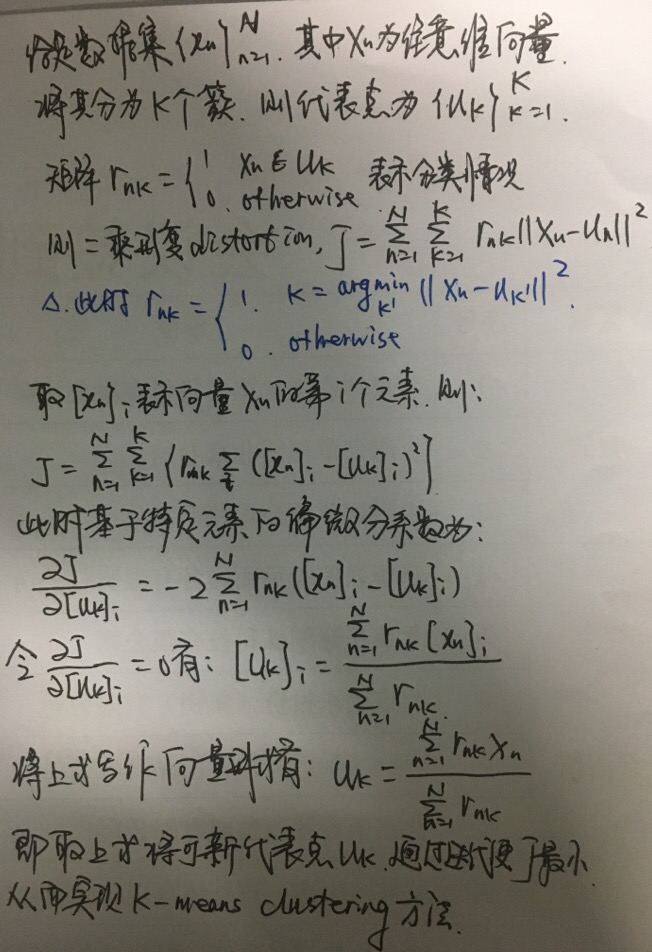 给定数据集 {xn}_{n=1}^{N}. 其中 xn 为任意维向量.
将其分为 K 个簇. 则代表点为 {uk}_{k=1}^{K}.
矩阵 r_{nk} = { 1 xn ∈ uk 0. otherwise 表示分类情况
则二乘形变 distortion, J = Σ_{n=1}^{N} Σ_{k=1}^{K} r_{nk} ||xn - un||^2
△. 此时 r_{nk} = { 1. k = argmin_{k'} ||xn - uk'||^2.
0. otherwise
取 [xn]i 表示向量 xn 的第 i 个元素. 则:
J = Σ_{n=1}^{N} Σ_{k=1}^{K} {r_{nk} Σ_{i} ([xn]i - [uk]i)^2}
此时基于特定元素的偏微分系数为:
∂J/∂[uk]i = -2 Σ_{n=1}^{N} r_{nk} ([xn]i - [uk]i)
令 ∂J/∂[uk]i = 0 有: [uk]i = Σ_{n=1}^{N} r_{nk} [xn]i / Σ_{n=1}^{N} r_{nk}
将上式写作向量形式有: uk = Σ_{n=1}^{N} r_{nk} xn / Σ_{n=1}^{N} r_{nk}
即取上式将可新代表点 uk. 通过迭代使 J 最小.
从而实现 K-means clustering 方法.